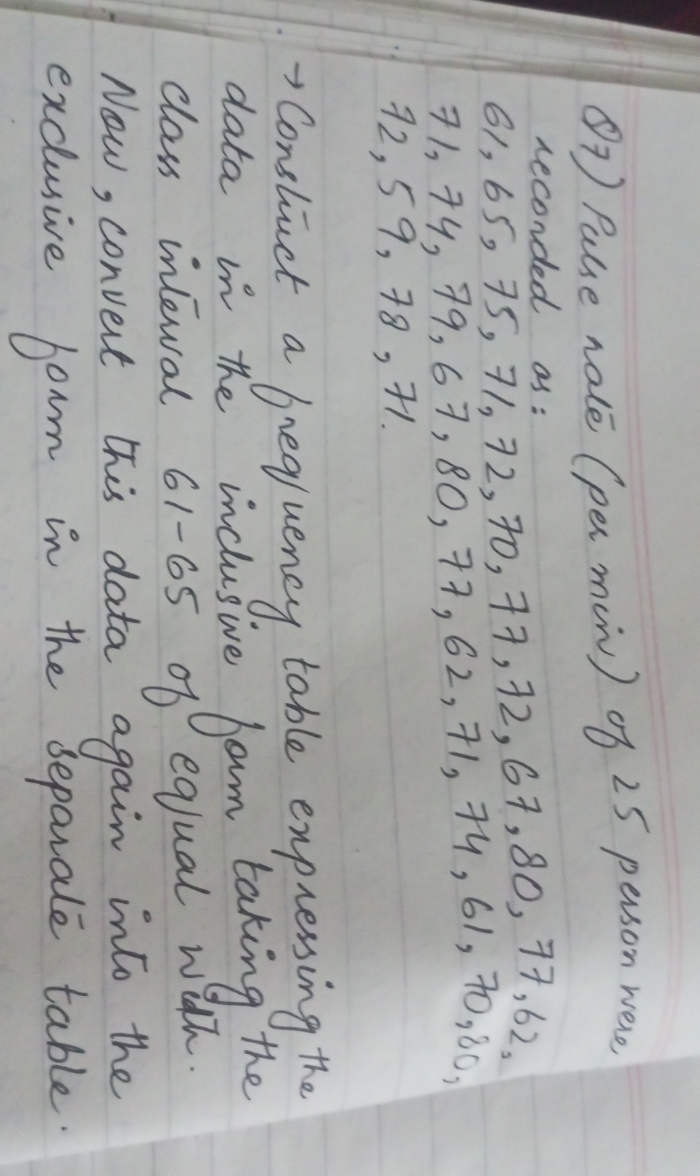 Q7) Pulse rate (per min) of 25 person were
recorded as:
61, 65, 75, 71, 72, 70, 77, 72, 67, 80, 77, 62,
71, 74, 79, 67, 80, 77, 62, 71, 74, 61, 70, 80,
72, 59, 78, 71.
→ Construct a frequency table expressing the
data in the inclusive form taking the
class interval 61-65 of equal width.
Now, convert this data again into the
exclusive form in the separate table.